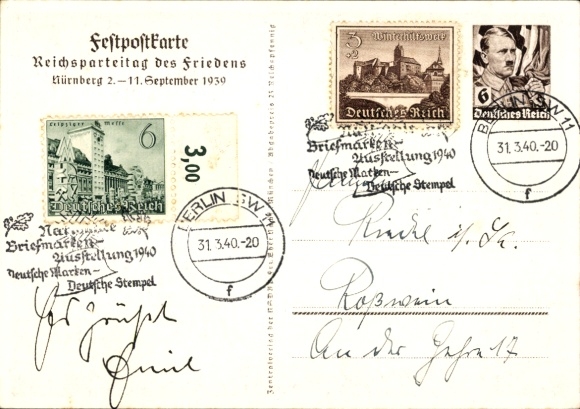 Festpostkarte
Reichsparteitag des Friedens
Nürnberg 2.–11. September 1939
Leipziger Messe
6
Deutsches Reich
3,00
BERLIN SW 11
31.3.40.-20
f
Nationale
Briefmarken-
Ausstellung 1940
Deutsche Marken-
Deutsche Stempel
Es grüßt
Emil
Zentralverlag der NSDAP. Frz. Eher Nachf. München · Abgabepreis 25 Reichspfennig
Winterhilfswerk
3
+2
Deutsches Reich
6
Deutsches Reich
Briefmarken-
Ausstellung 1940
Deutsche Marken-
Deutsche Stempel
BERLIN SW 11
31.3.40.-20
f
i./Sa.
Roßwein
An der Jahre 17